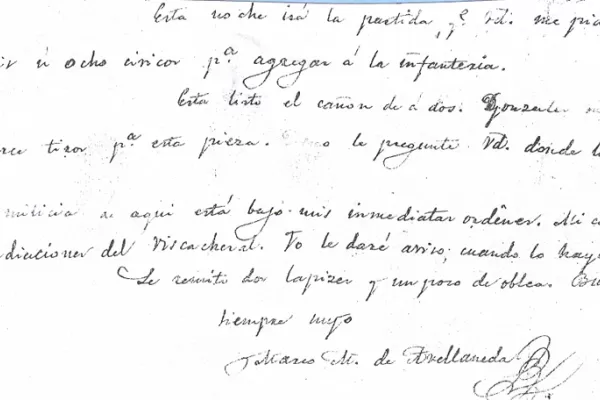 Esta noche irá la partida, qᵉ Vd. me pid
ó ocho civicos pᵃ agregar á la infanteria.
Esta listo el cañon de á dos. Gonzalez
tiros pᵃ esta pieza. le pregunte Vd. donde
milicia de aqui está bajo mis inmediatas ordenes. Mi
diaciones del Viscacheral. Yo le daré aviso, cuando lo hay
Le remito dos lapizes y un poco de oblea.
Siempre suyo
Marco M. de Avellaneda